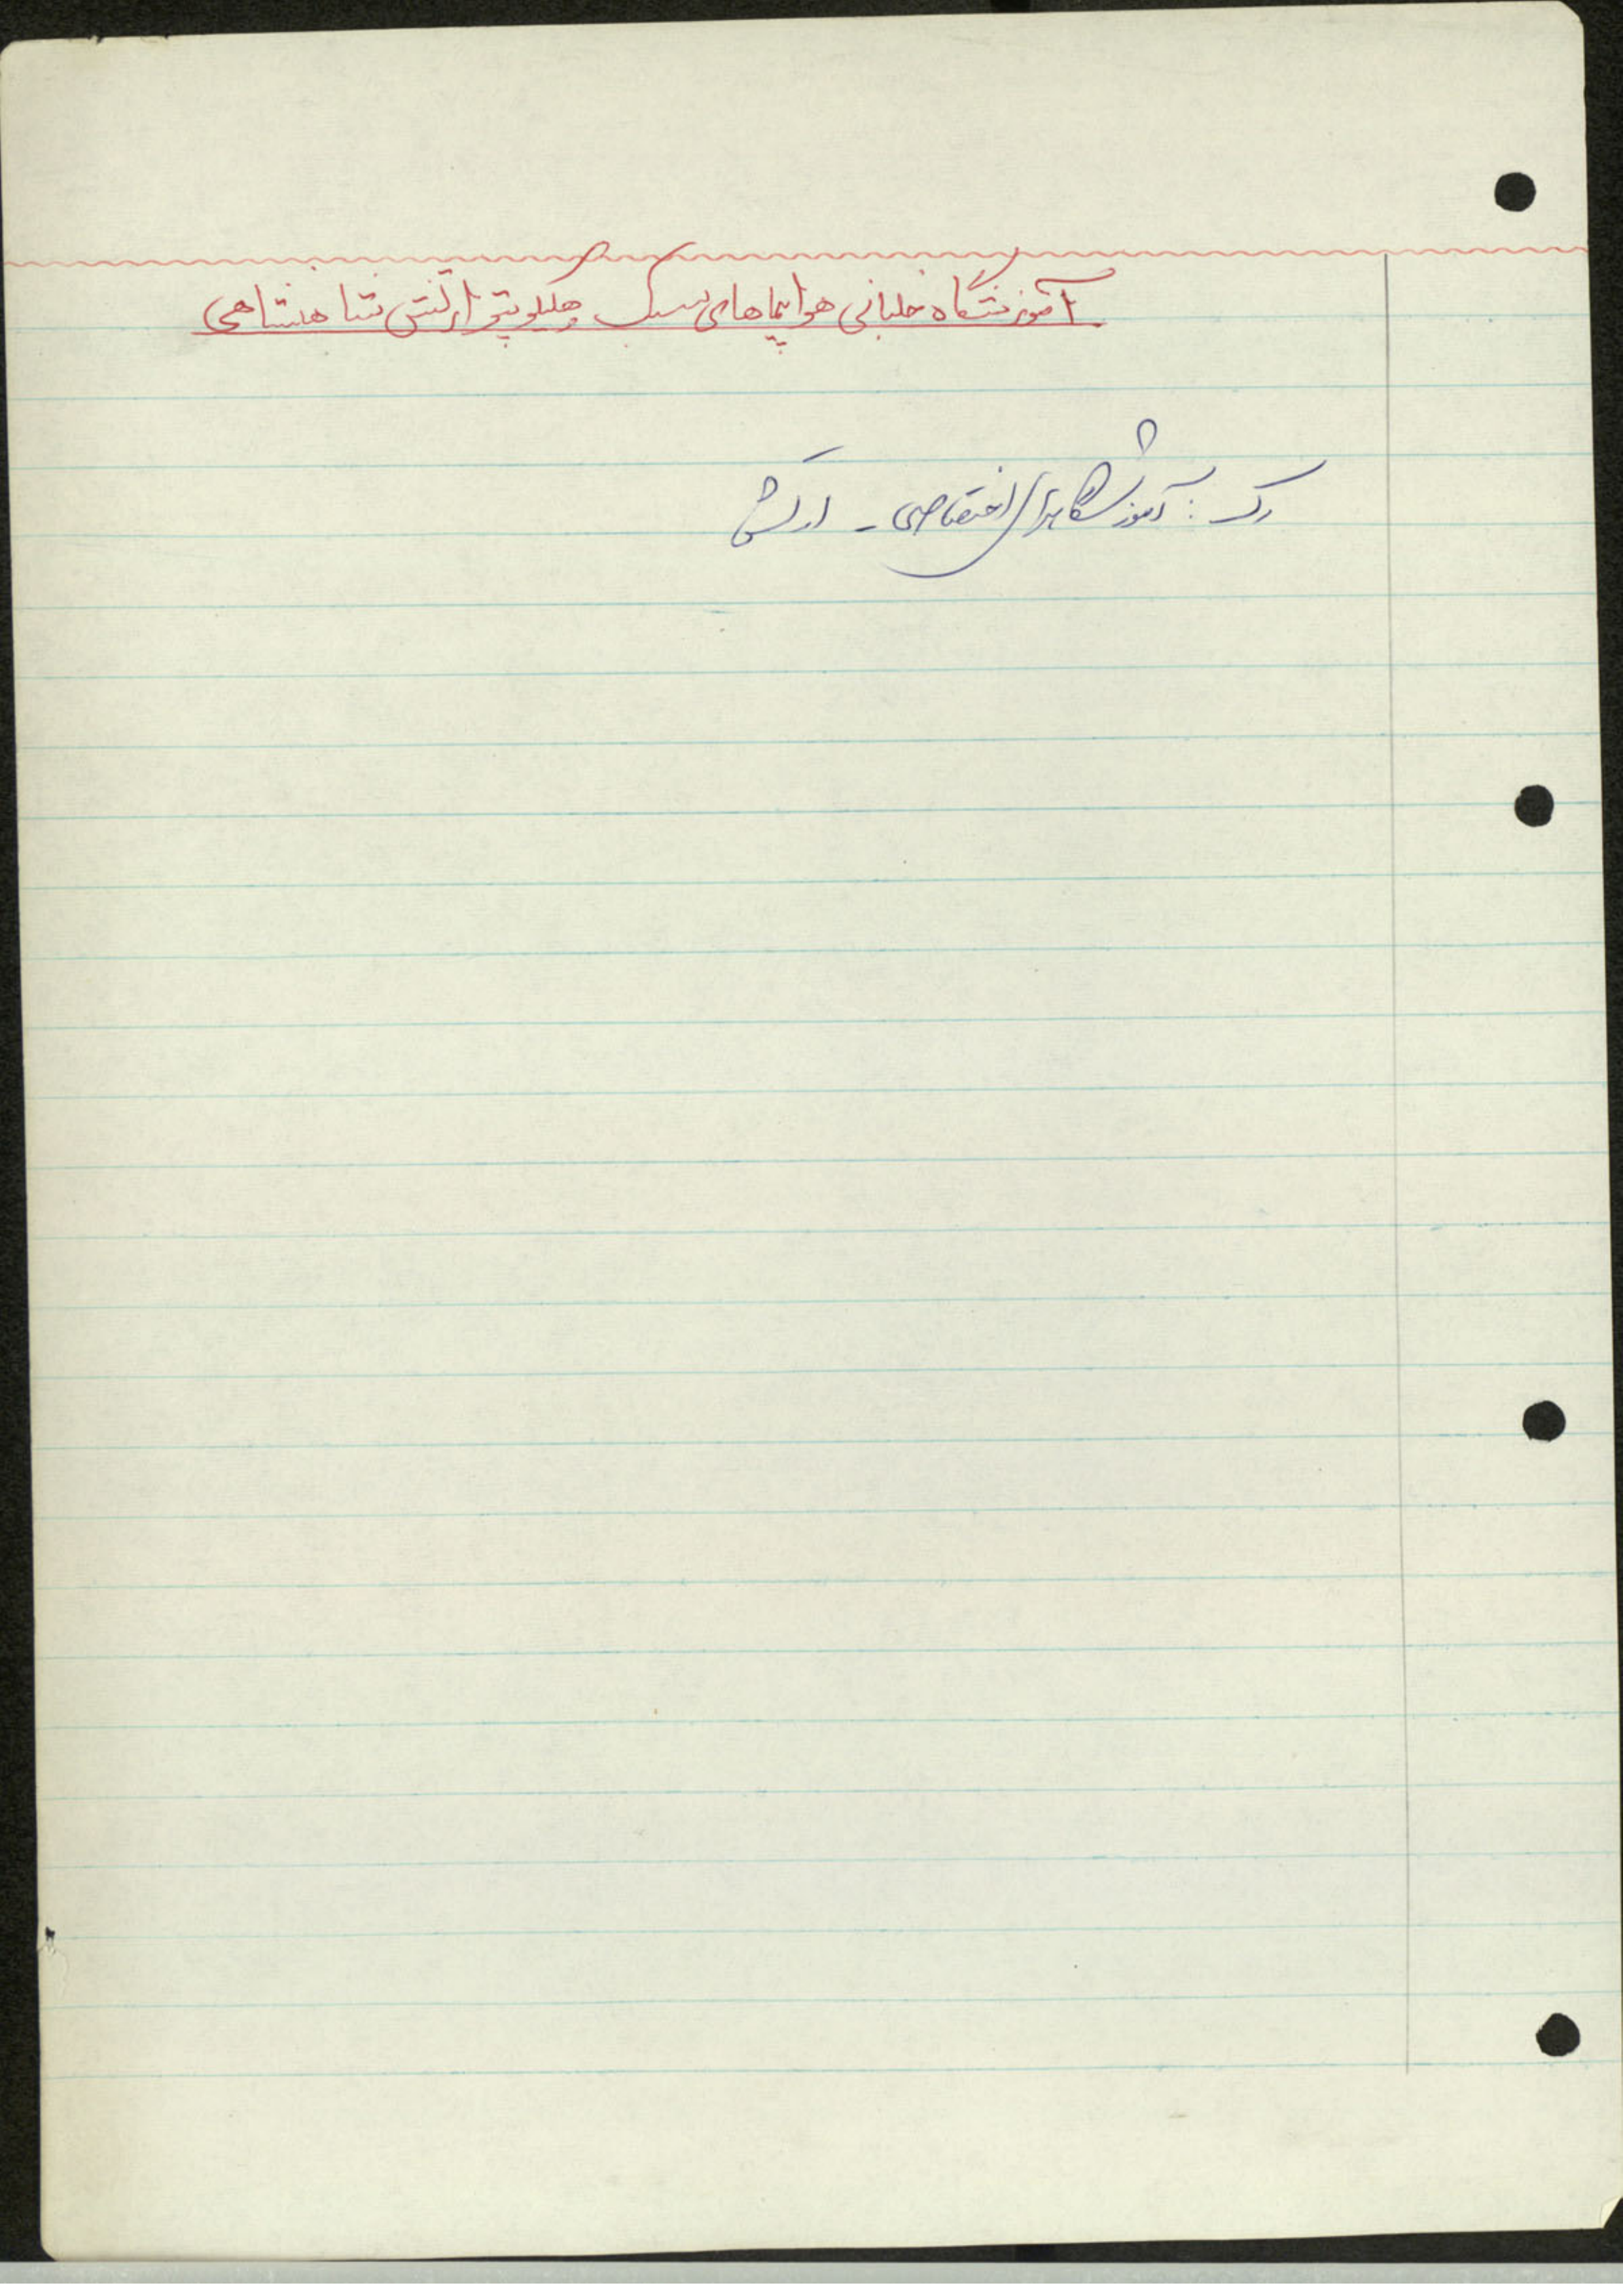 آموزشگاه خلبانی هواپیماهای سبک و هلیکوپتر ارتش شاهنشاهی
رک : آموزشگاههای اختصاصی - ارتش